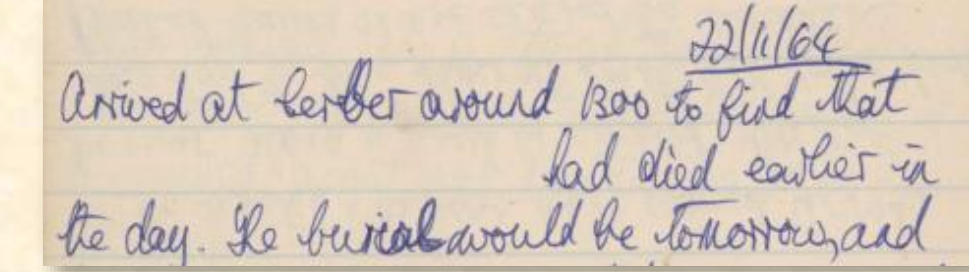 22/11/64
Arrived at Berber around 1300 to find that
had died earlier in
the day. The burial would be tomorrow, and